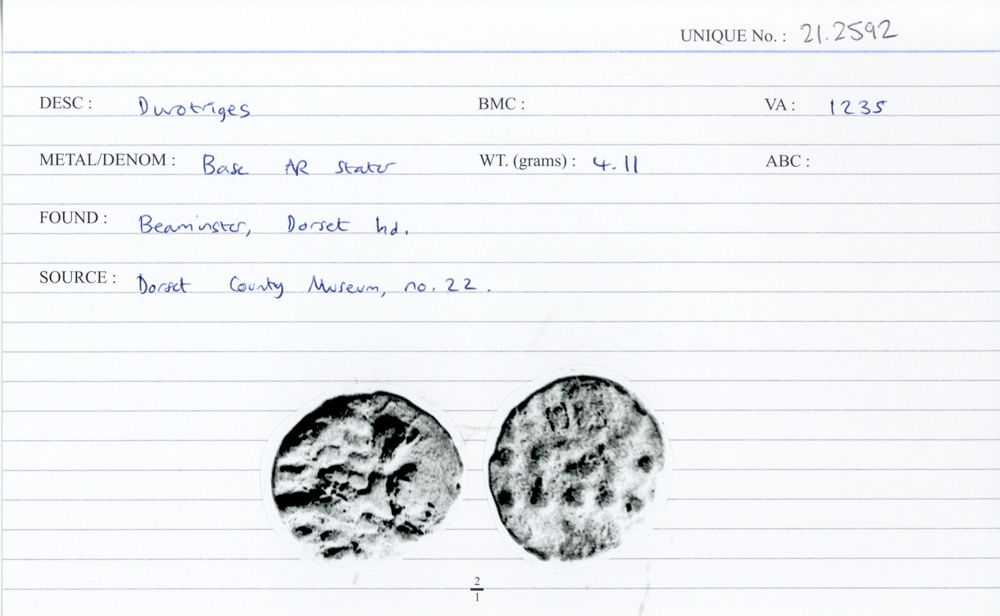 UNIQUE No. : 21.2592
DESC : Durotriges BMC : VA : 1235
METAL/DENOM : Base AR stater WT. (grams) : 4.11 ABC :
FOUND : Beaminster, Dorset hd.
SOURCE : Dorset County Museum, no. 22.
2
1